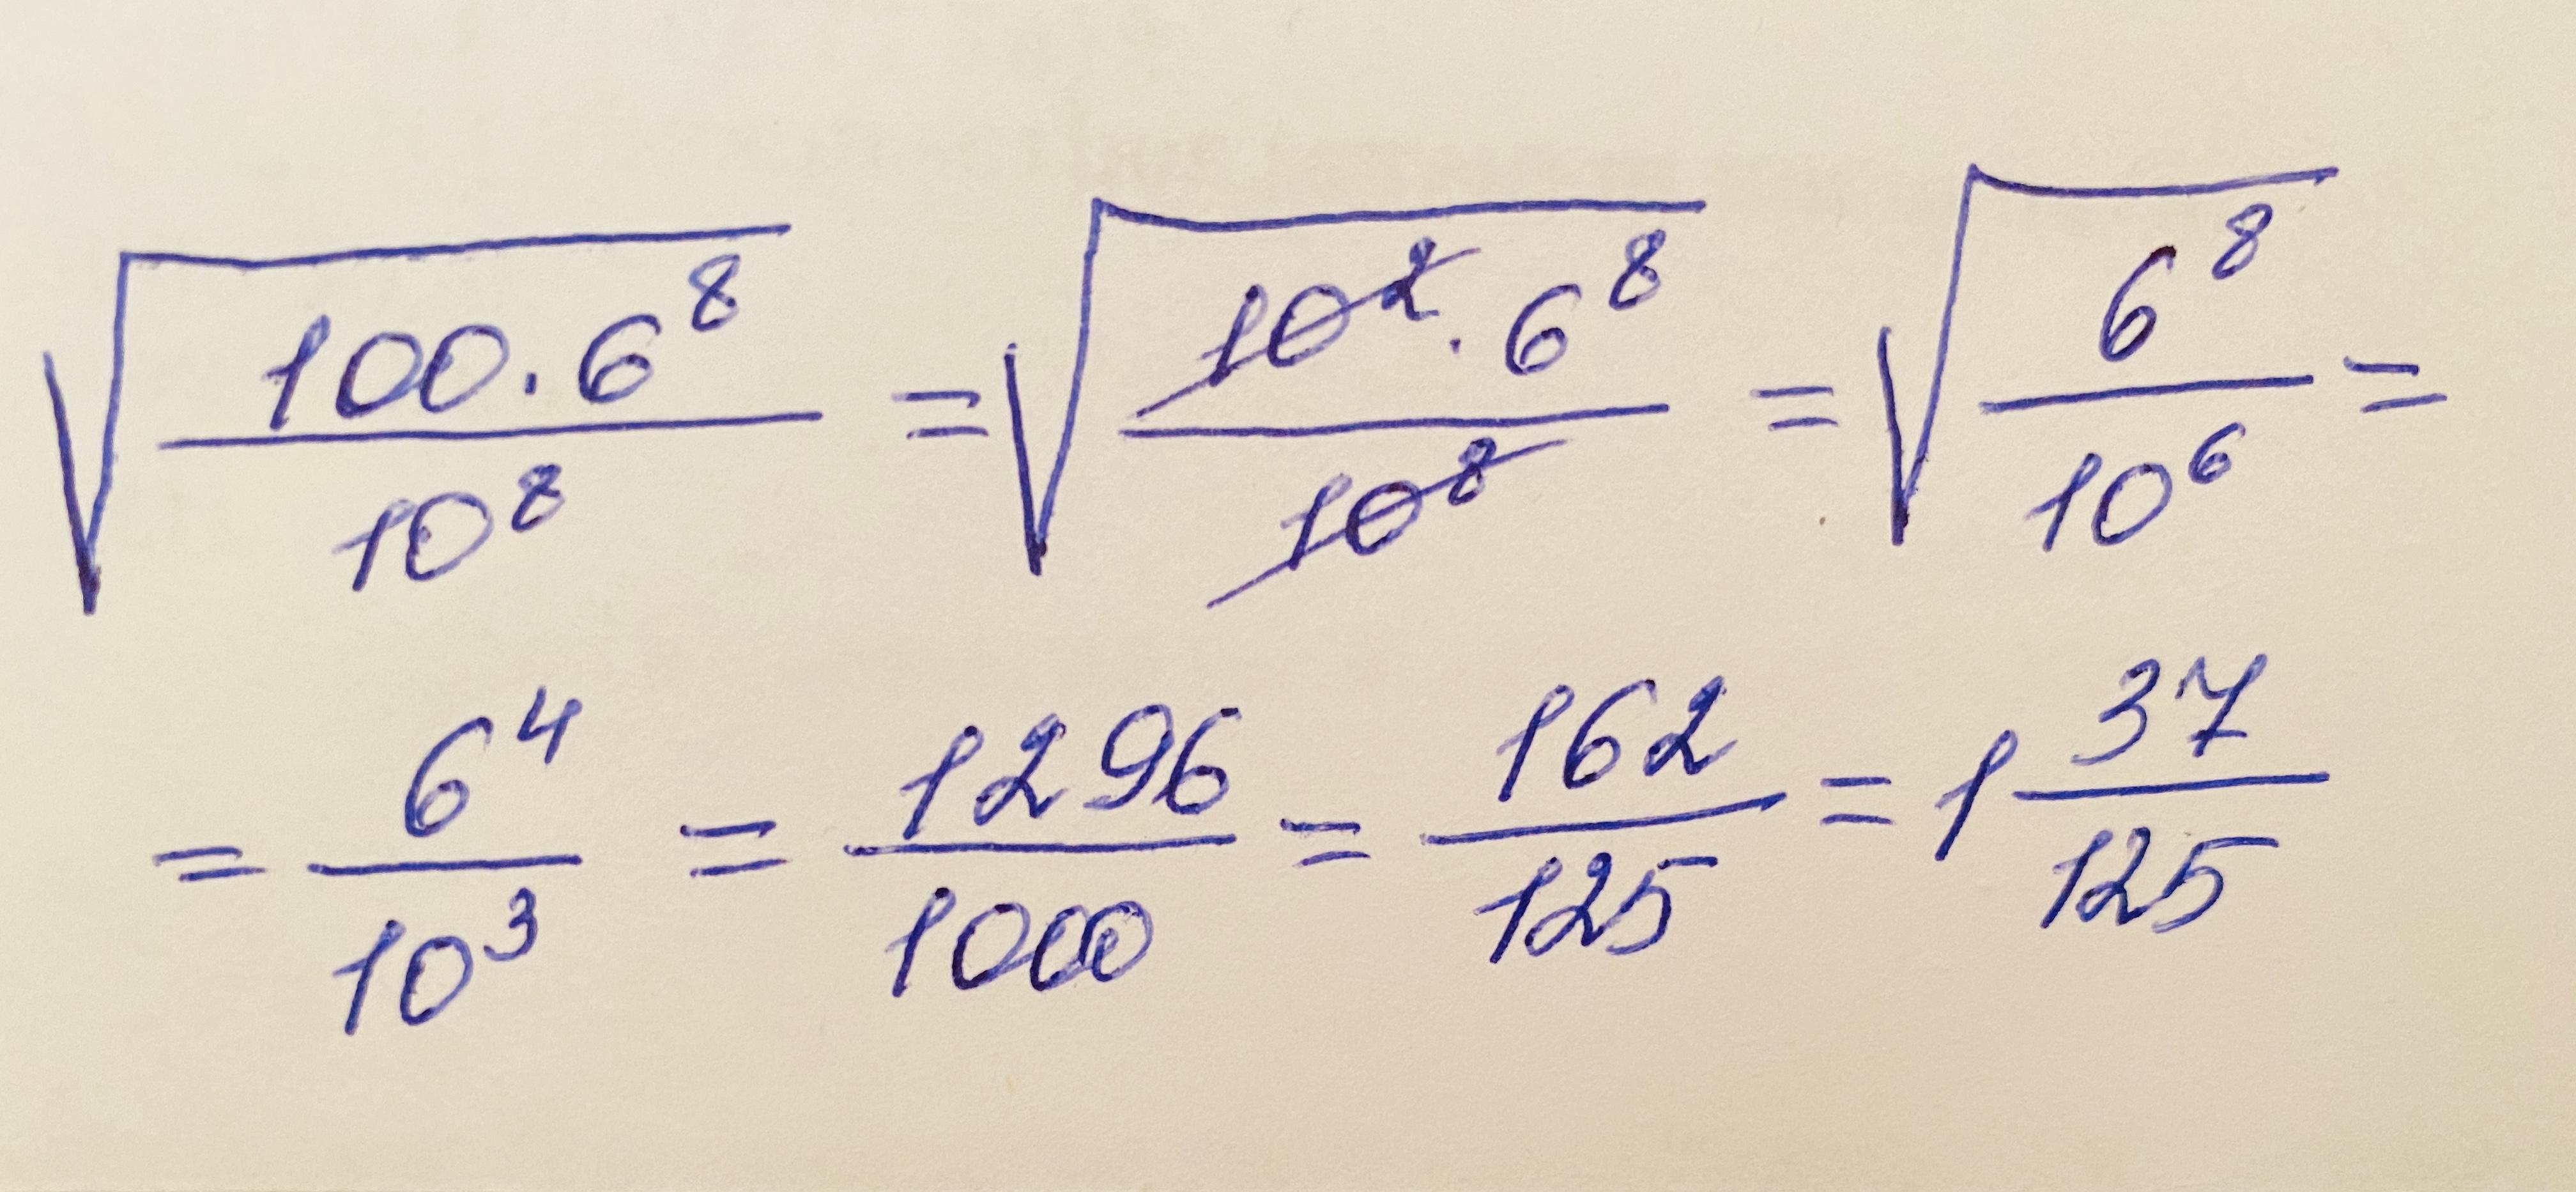 √(100·6⁸/10⁸) = √(10²·6⁸/10⁸) = √(6⁸/10⁶) =
= 6⁴/10³ = 1296/1000 = 162/125 = 1 37/125